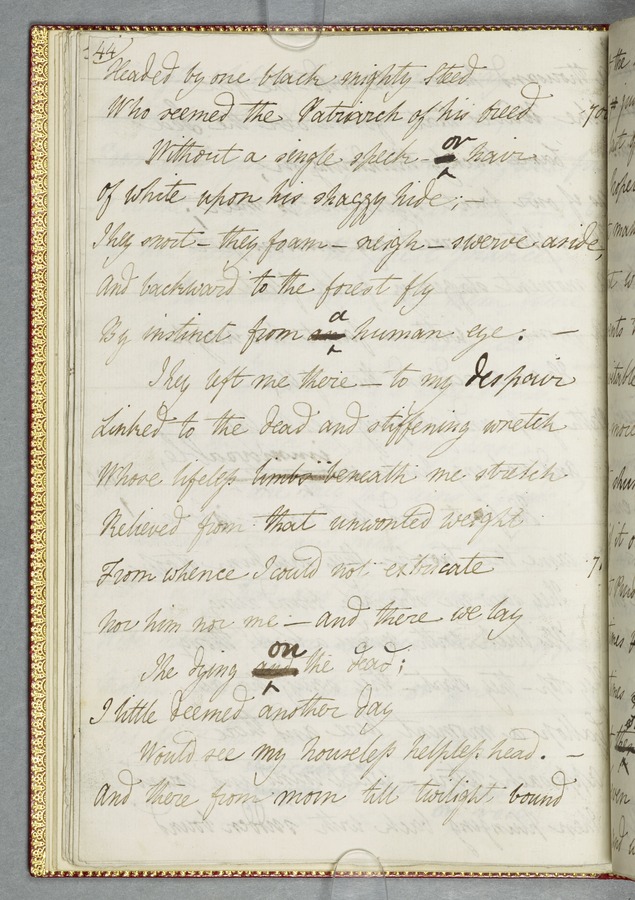 44
Headed by one black mighty Steed
Who seemed the Patriarch of his breed 70
Without a single speck - or hair
Of white upon his shaggy hide; -
They snort - they foam - neigh - swerve aside,
And backward to the forest fly
By instinct from a human eye. -
They left me there - to my despair
Linked to the dead and stiffening wretch
Whose lifeless limbs beneath me stretch
Relieved from that unwonted weight
From whence I could not extricate 7
Nor him nor me - and there we lay
The dying on the dead;
I little deemed another day
Would see my houseless helpless head. -
And there from morn till twilight bound